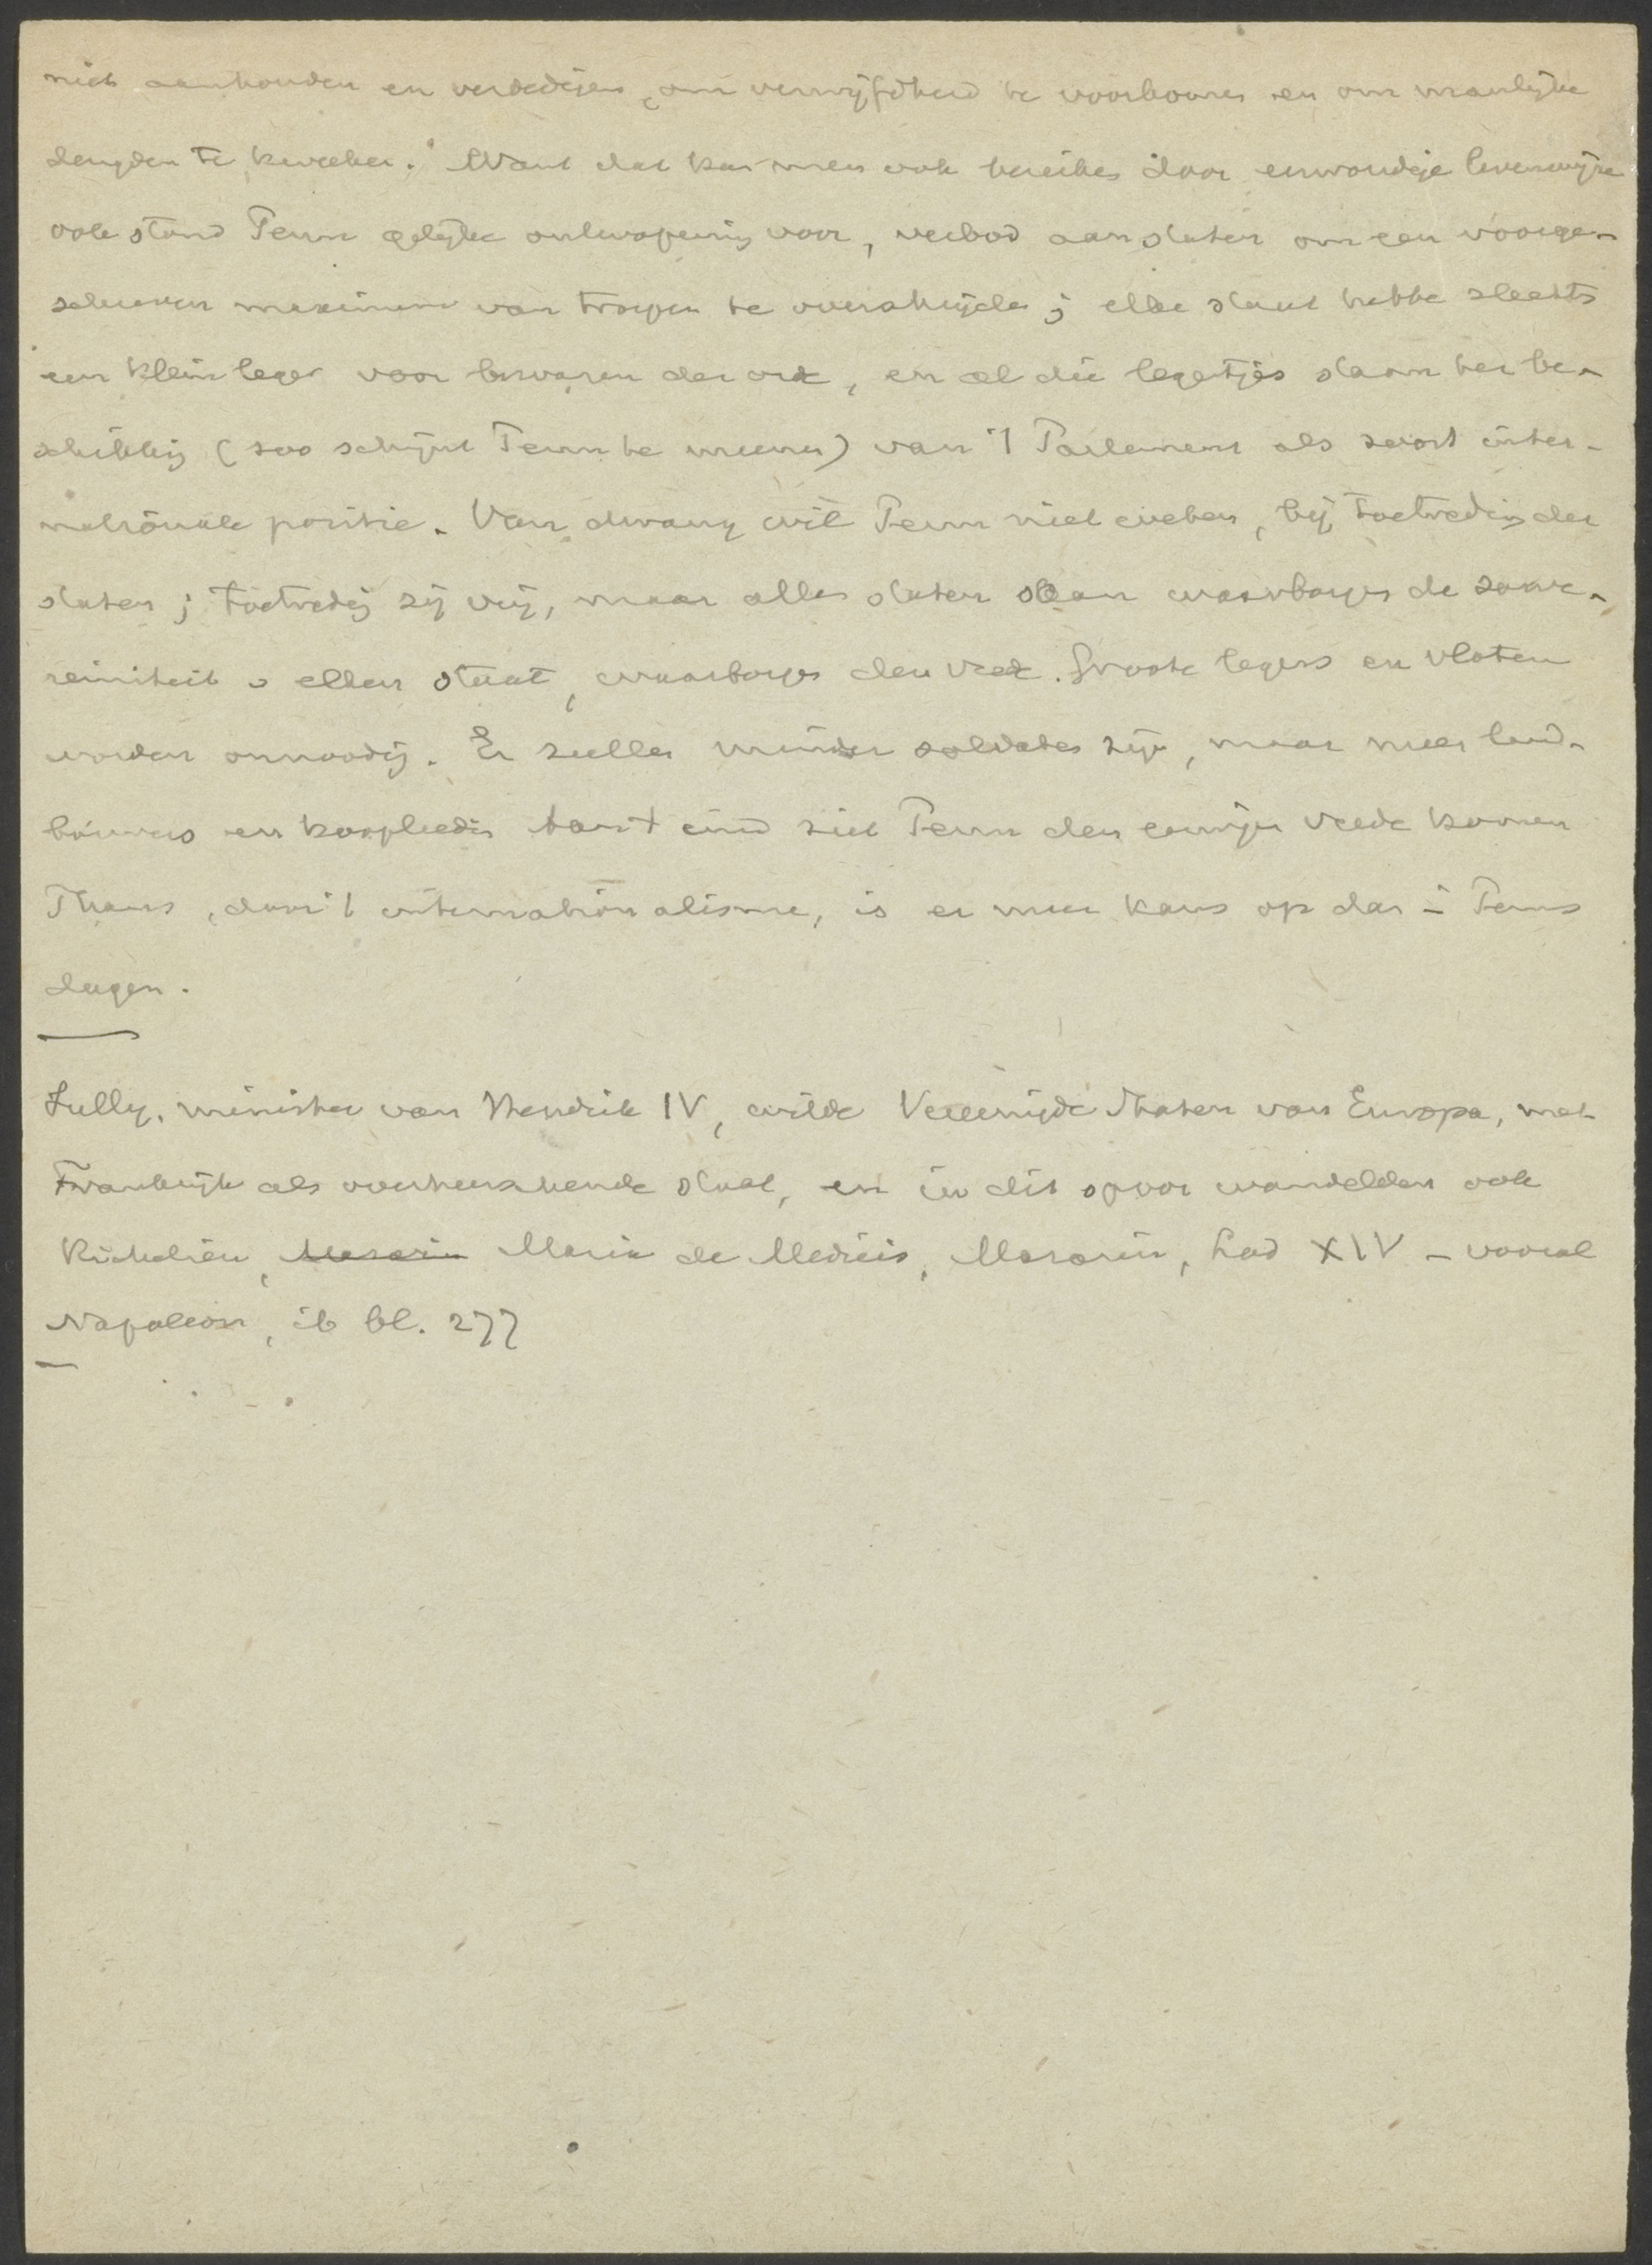 niet aanhouden en verdedigen, om verwijfdheid te voorkomen en om manlijke
deugden te kweeken. Want dat kan men ook bereiken door eenvoudige levenswijze
ook stond Penn gelijke ontwapening voor, verbod aan staten om een voorge-
schreven maximum van troepen te overschrijden; elke staat hebbe slechts
een klein leger voor bewaren der orde, en al die legertjes staan ter be-
schikking (zoo schijnt Penn te meenen) van 't Parlement als soort inter-
nationale politie. Van dwang wil Penn niet weten, bij toetreding der
staten; toetreding zij vrij, maar alle staten waarborgen de souve-
reiniteit v elken staat, waarborgen den vrede. Groote legers en vloten
worden onnoodig. Er zullen minder soldaten zijn, maar meer land-
bouwers en kooplieden aan 't eind ziet Penn den eeuwigen vrede komen
Thans, door 't internationalisme, is er meer kans op dan in Penns
dagen.
Sully, minister van Hendrik IV, wilde Vereenigde Staten van Europa, met
Frankrijk als overheerschende staat, en in dit spoor wandelden ook
Richelieu, Mazarin Maria de Medicis, Mazarin, Lod XIV - vooral
Napoleon, ib bl. 277